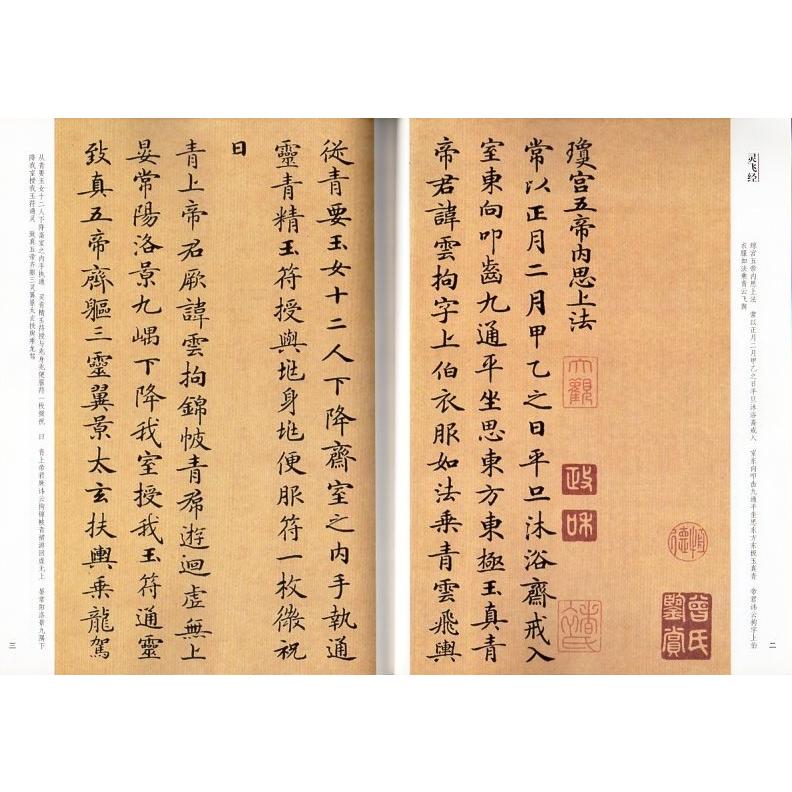 琼宫五帝内思上法　常以正月二月甲乙之日平旦沐浴斋戒入　室东向叩齿九通平坐思东方东极玉真青　帝君讳云拘字上伯
衣服如法乘青云飞舆
二
灵飞经
曾氏
鑒賞
大觀
政和
瓊宫五帝内思上法
常以正月二月甲乙之日平旦沐浴齋戒入
室東向叩齒九通平坐思東方東極玉真青
帝君諱雲拘字上伯衣服如法乗青雲飛輿
從青要玉女十二人下降齋室之内手執通
靈青精玉符授與兆身兆便服符一枚微祝
曰
青上帝君厥諱雲拘錦帔青帬遊迴虚無上
晏常陽洛景九嵎下降我室授我玉符通靈
致真五帝齊軀三靈翼景太玄扶輿乗龍駕
从青要玉女十二人下降斋室之内手执通　灵青精玉符授与兆身兆便服符一枚微祝　曰　青上帝君厥讳云拘锦帔青裙游回虚无上　晏常阳洛景九隅下
降我室授我玉符通灵　致真五帝齐躯三灵翼景太玄扶舆乘龙驾
三